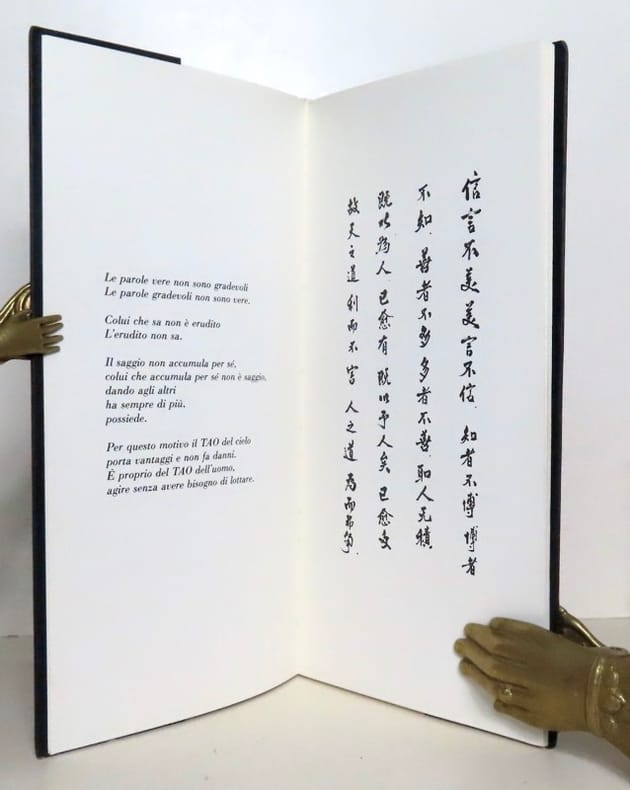 Le parole vere non sono gradevoli
Le parole gradevoli non sono vere.
Colui che sa non è erudito
L'erudito non sa.
Il saggio non accumula per sé,
colui che accumula per sé non è saggio,
dando agli altri
ha sempre di più.
possiede.
Per questo motivo il TAO del cielo
porta vantaggi e non fa danni.
È proprio del TAO dell'uomo,
agire senza avere bisogno di lottare.
信言不美美言不信.知者不博博者
不知.善者不多多者不善.耴人无積
既以為人已愈有既以予人矣已愈多
故天之道利而不害人之道為而弗争.